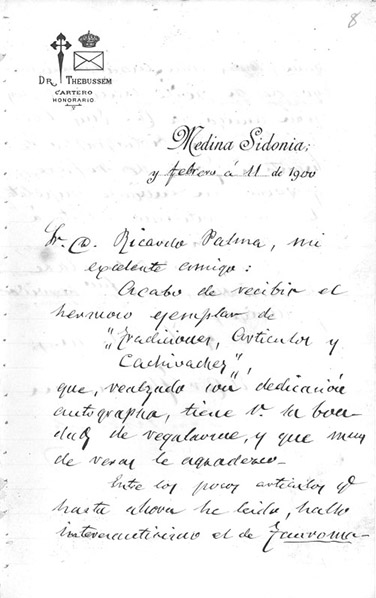 8
DR. THEBUSSEM
CARTERO
HONORARIO
Medina Sidonia;
y febrero á 11 de 1900
Sr. D. Ricardo Palma, mi
excelente amigo:
Acabo de recibir el
hermoso ejemplar de
"Tradiciones, Articulos y
Cachivaches",
que, realzado con dedicatoria
autographa, tiene V. la bon-
dad de regalarme, y que muy
de veras le agradezco.
Entre los pocos articulos q̃
hasta ahora he leido, hallo
interesantisimo el de Tauroma-